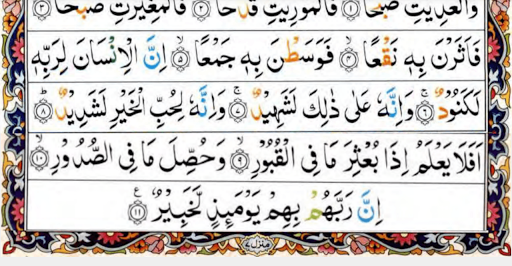 وَالْعٰدِيٰتِ ضَبْحًا ۝۱ فَالْمُوْرِيٰتِ قَدْحًا ۝۲ فَالْمُغِيْرٰتِ صُبْحًا ۝۳
فَاَثَرْنَ بِهٖ نَقْعًا ۝۴ فَوَسَطْنَ بِهٖ جَمْعًا ۝۵ اِنَّ الْاِنْسَانَ لِرَبِّهٖ
لَكَنُوْدٌ ۝۶ وَاِنَّهٗ عَلٰى ذٰلِكَ لَشَهِيْدٌ ۝۷ وَاِنَّهٗ لِحُبِّ الْخَيْرِ لَشَدِيْدٌ ۝۸
اَفَلَا يَعْلَمُ اِذَا بُعْثِرَ مَا فِى الْقُبُوْرِ ۝۹ وَحُصِّلَ مَا فِى الصُّدُوْرِ ۝۱۰
اِنَّ رَبَّهُمْ بِهِمْ يَوْمَئِذٍ لَّخَبِيْرٌ ۝۱۱